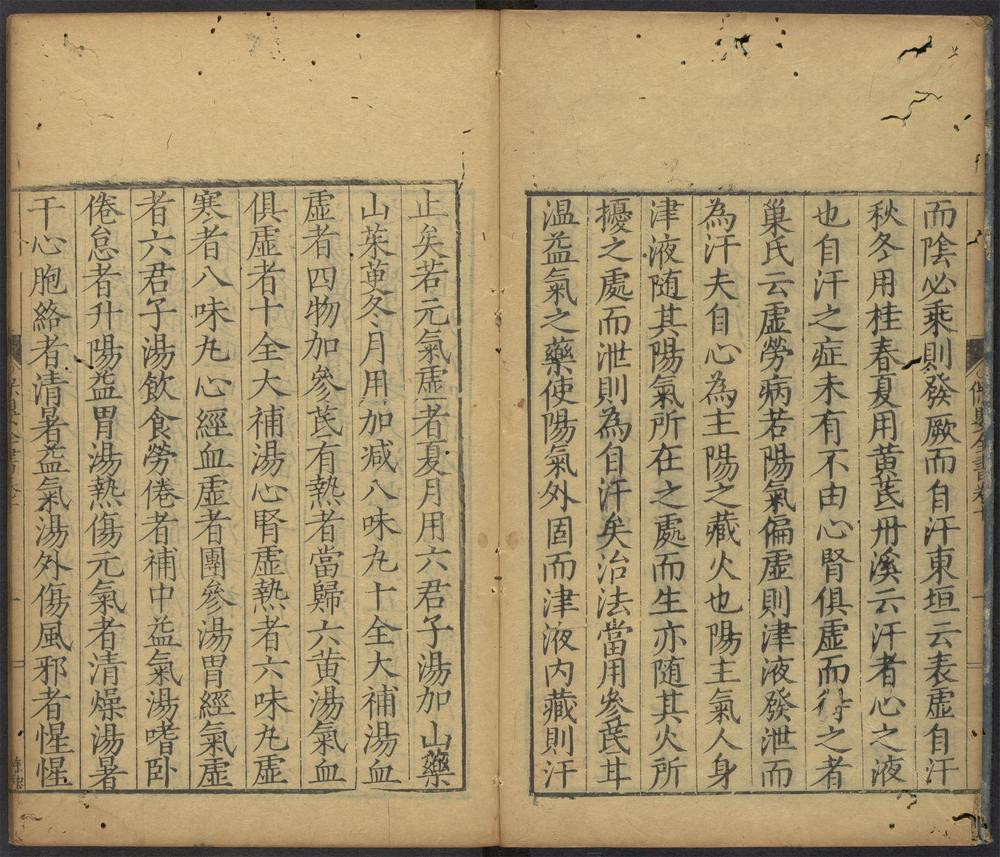 而陰必乘則發厥而自汗東垣云表虛自汗
秋冬用桂春夏用黃芪丹溪云汗者心之液
也自汗之症未有不由心腎俱虛而得之者
巢氏云虛勞病若陽氣偏虛則津液發泄而
為汗夫自心為主陽之藏火也陽主氣人身
津液随其陽氣所在之處而生亦随其火所
擾之處而泄則為自汗矣治法當用參芪甘
溫益氣之藥使陽氣外固而津液內藏則汗
止矣若元氣虛者夏月用六君子湯加山藥
山茱萸冬月用加减八味丸十全大補湯血
虛者四物加參芪有熱者當歸六黃湯氣血
俱虛者十全大補湯心腎虛熱者六味丸虛
寒者八味丸心經血虛者團參湯胃經氣虛
者六君子湯飲食勞倦者補中益氣湯嗜卧
倦怠者升陽益胃湯熱傷元氣者清燥湯暑
干心胞絡者清暑益氣湯外傷風邪者惺惺